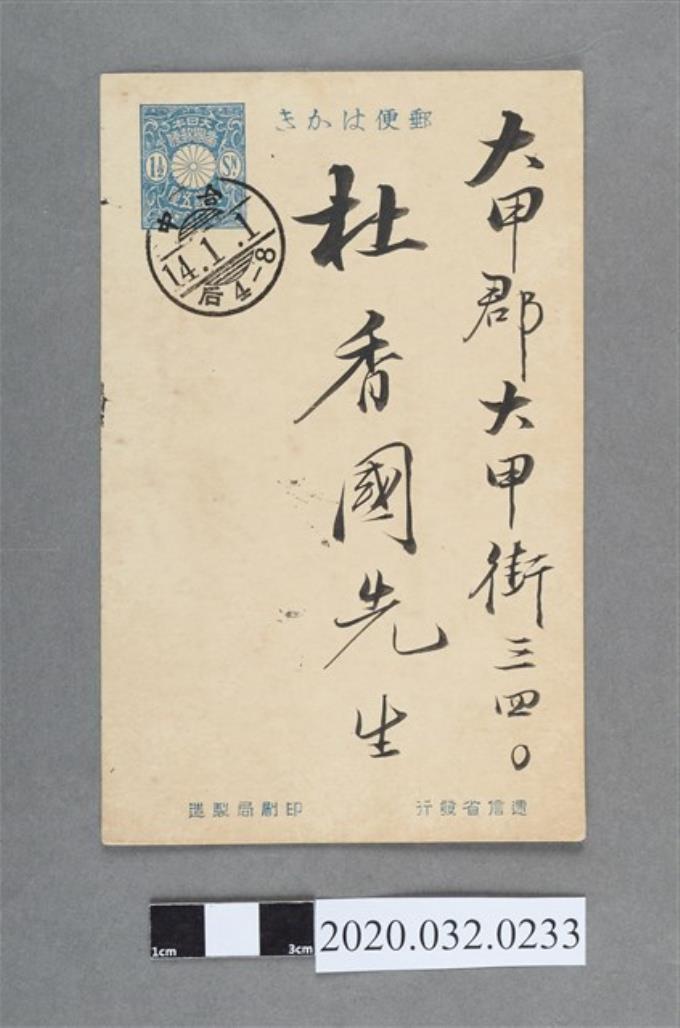 郵便はかき
大日本
1½
Sn
台中
14.1.1
后4-8
大甲郡大甲街三四〇
杜香國先生
遞信省發行
印刷局製造
1cm
3cm
2020.032.0233